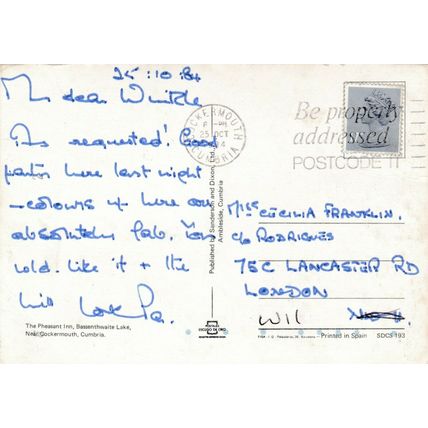 25:10.84
My dear
As requested! Good
party here last night
- colours up here are
absolutely fab. You
wld. like it + the
Love Pa.
COCKERMOUTH
CUMBRIA
PM
25 OCT
Be properly
addressed
POSTCODE IT
Published by Sanderson and Dixon Ltd.
Ambleside, Cumbria
Miss CECILIA FRANKLIN.
c/o RODRIGUES
75C LANCASTER RD
LONDON
W11
The Pheasant Inn, Bassenthwaite Lake,
Near Cockermouth, Cumbria.
Printed in Spain
SDCS 193